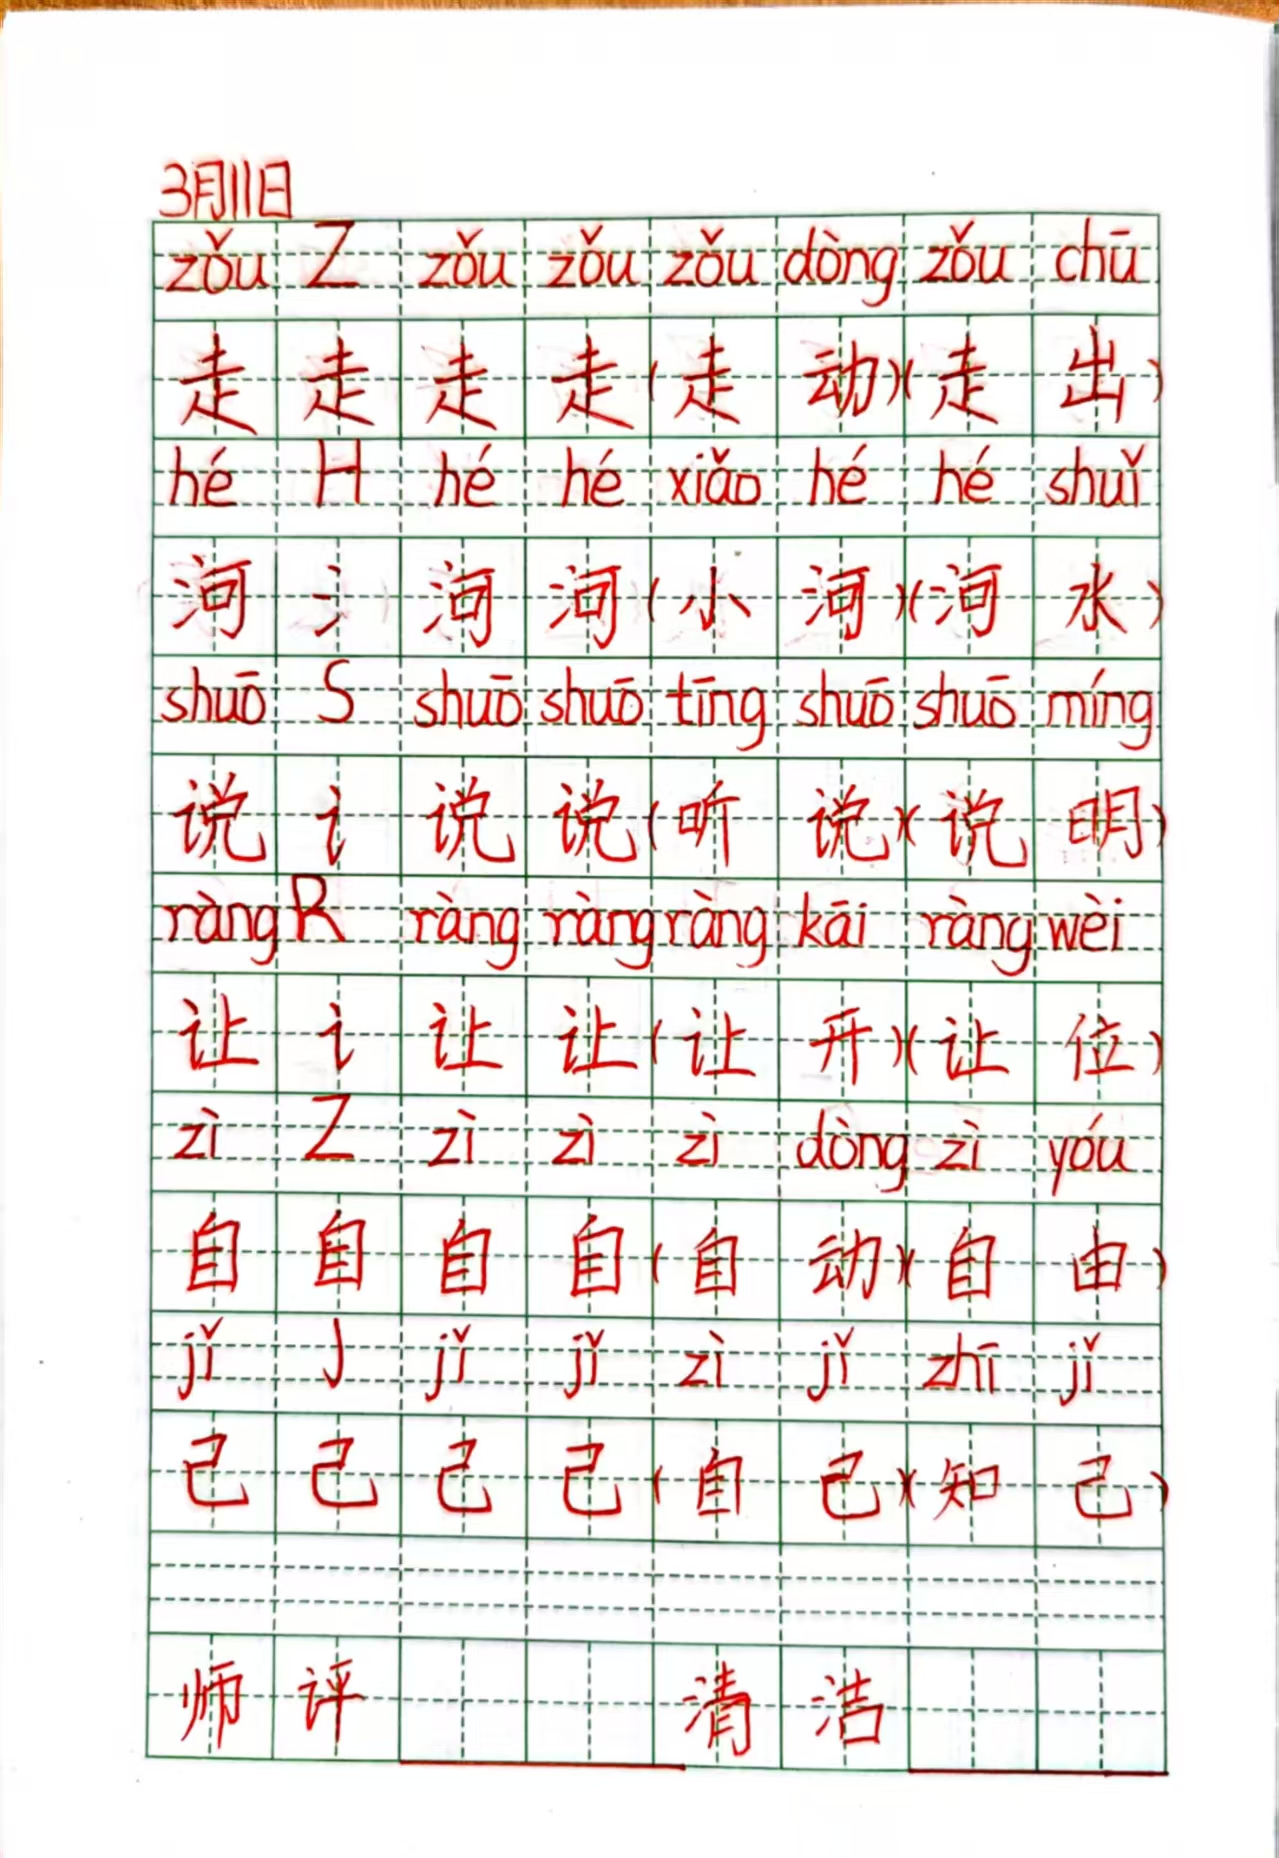 3月11日
zǒu Z zǒu zǒu zǒu dòng zǒu chū
走 走 走 走 (走 动)(走 出)
hé H hé hé xiǎo hé hé shuǐ
河 氵 河 河 (小 河)(河 水)
shuō S shuō shuō tīng shuō shuō míng
说 讠 说 说 (听 说)(说 明)
ràng R ràng ràng ràng kāi ràng wèi
让 讠 让 让 (让 开)(让 位)
zì Z zì zì zì dòng zì yóu
自 自 自 自 (自 动)(自 由)
jǐ J jǐ jǐ zì jǐ zhī jǐ
己 己 己 己 (自 己)(知 己)
师 评 清 洁